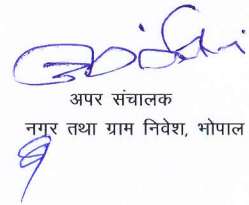 अपर संचालक
नगर तथा ग्राम निवेश, भोपाल